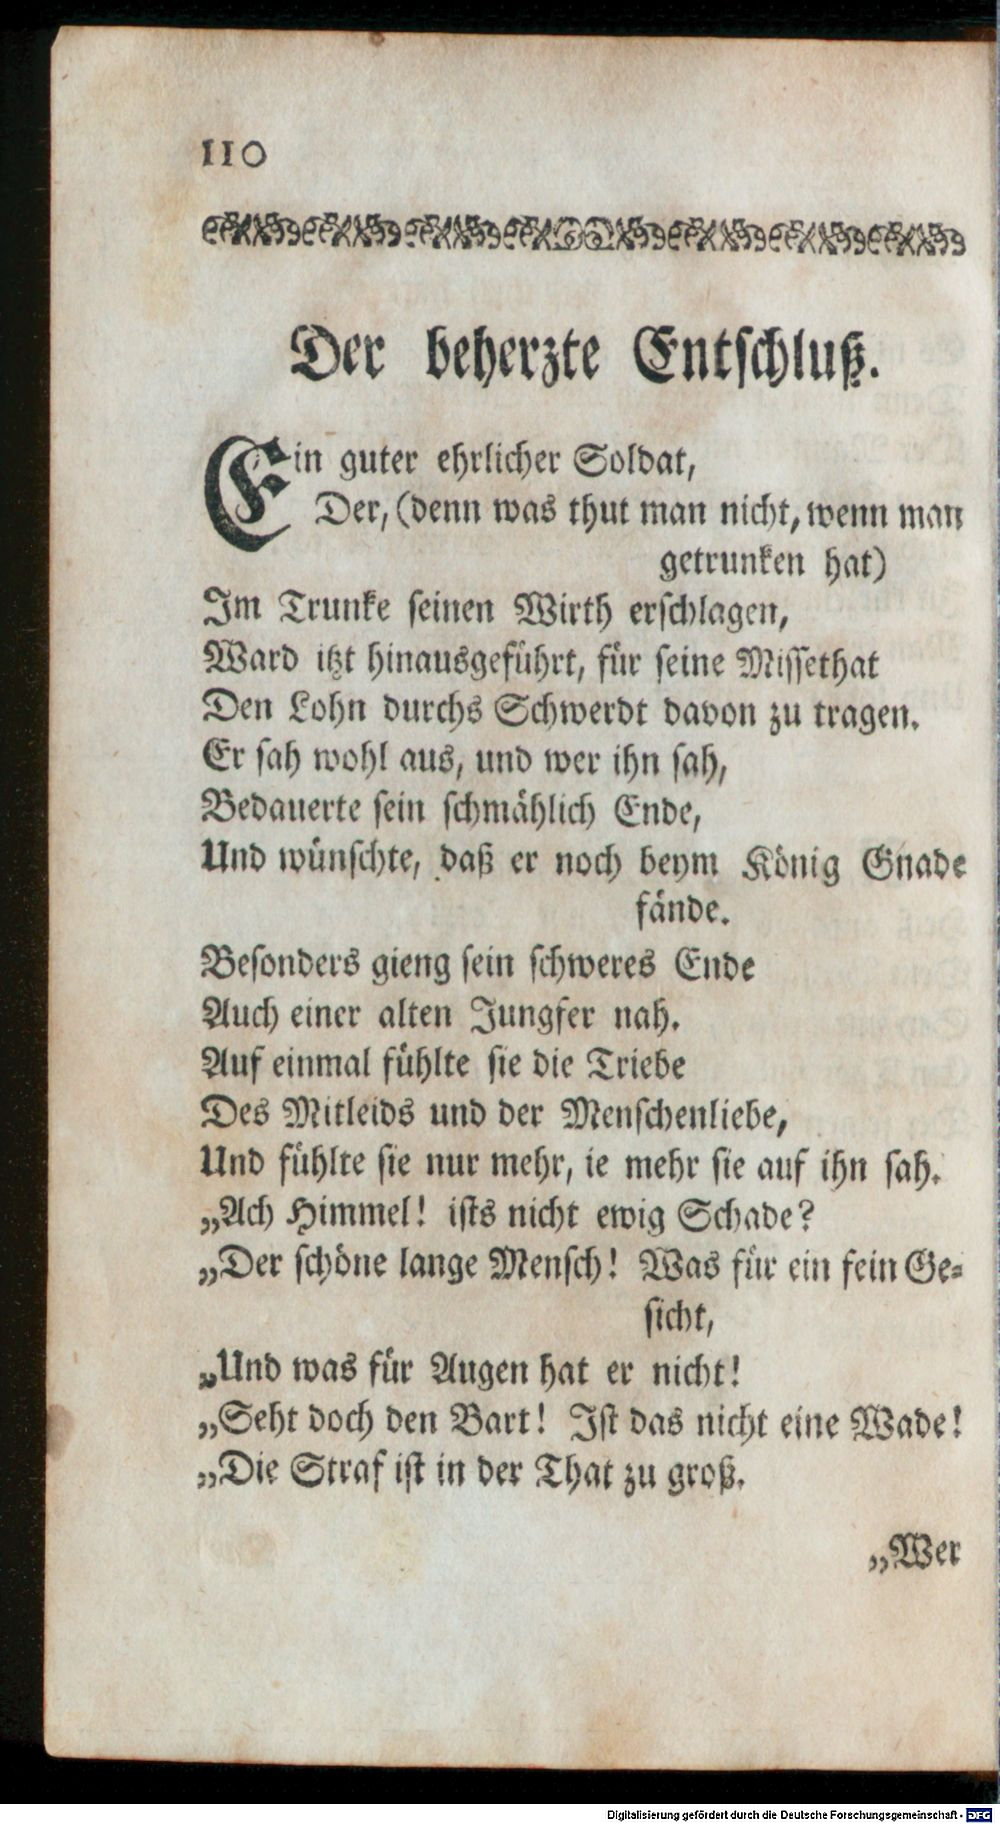 110
Der beherzte Entschluß.
Ein guter ehrlicher Soldat,
Der, (denn was thut man nicht, wenn man
getrunken hat)
Im Trunke seinen Wirth erschlagen,
Ward itzt hinausgeführt, für seine Missethat
Den Lohn durchs Schwerdt davon zu tragen.
Er sah wohl aus, und wer ihn sah,
Bedauerte sein schmählich Ende,
Und wünschte, daß er noch beym König Gnade
fände.
Besonders gieng sein schweres Ende
Auch einer alten Jungfer nah.
Auf einmal fühlte sie die Triebe
Des Mitleids und der Menschenliebe,
Und fühlte sie nur mehr, ie mehr sie auf ihn sah.
„Ach Himmel! ists nicht ewig Schade?
„Der schöne lange Mensch! Was für ein fein Ge-
sicht,
„Und was für Augen hat er nicht!
„Seht doch den Bart! Ist das nicht eine Wade!
„Die Straf ist in der That zu groß.
„Wer
Digitalisierung gefördert durch die Deutsche Forschungsgemeinschaft - DFG